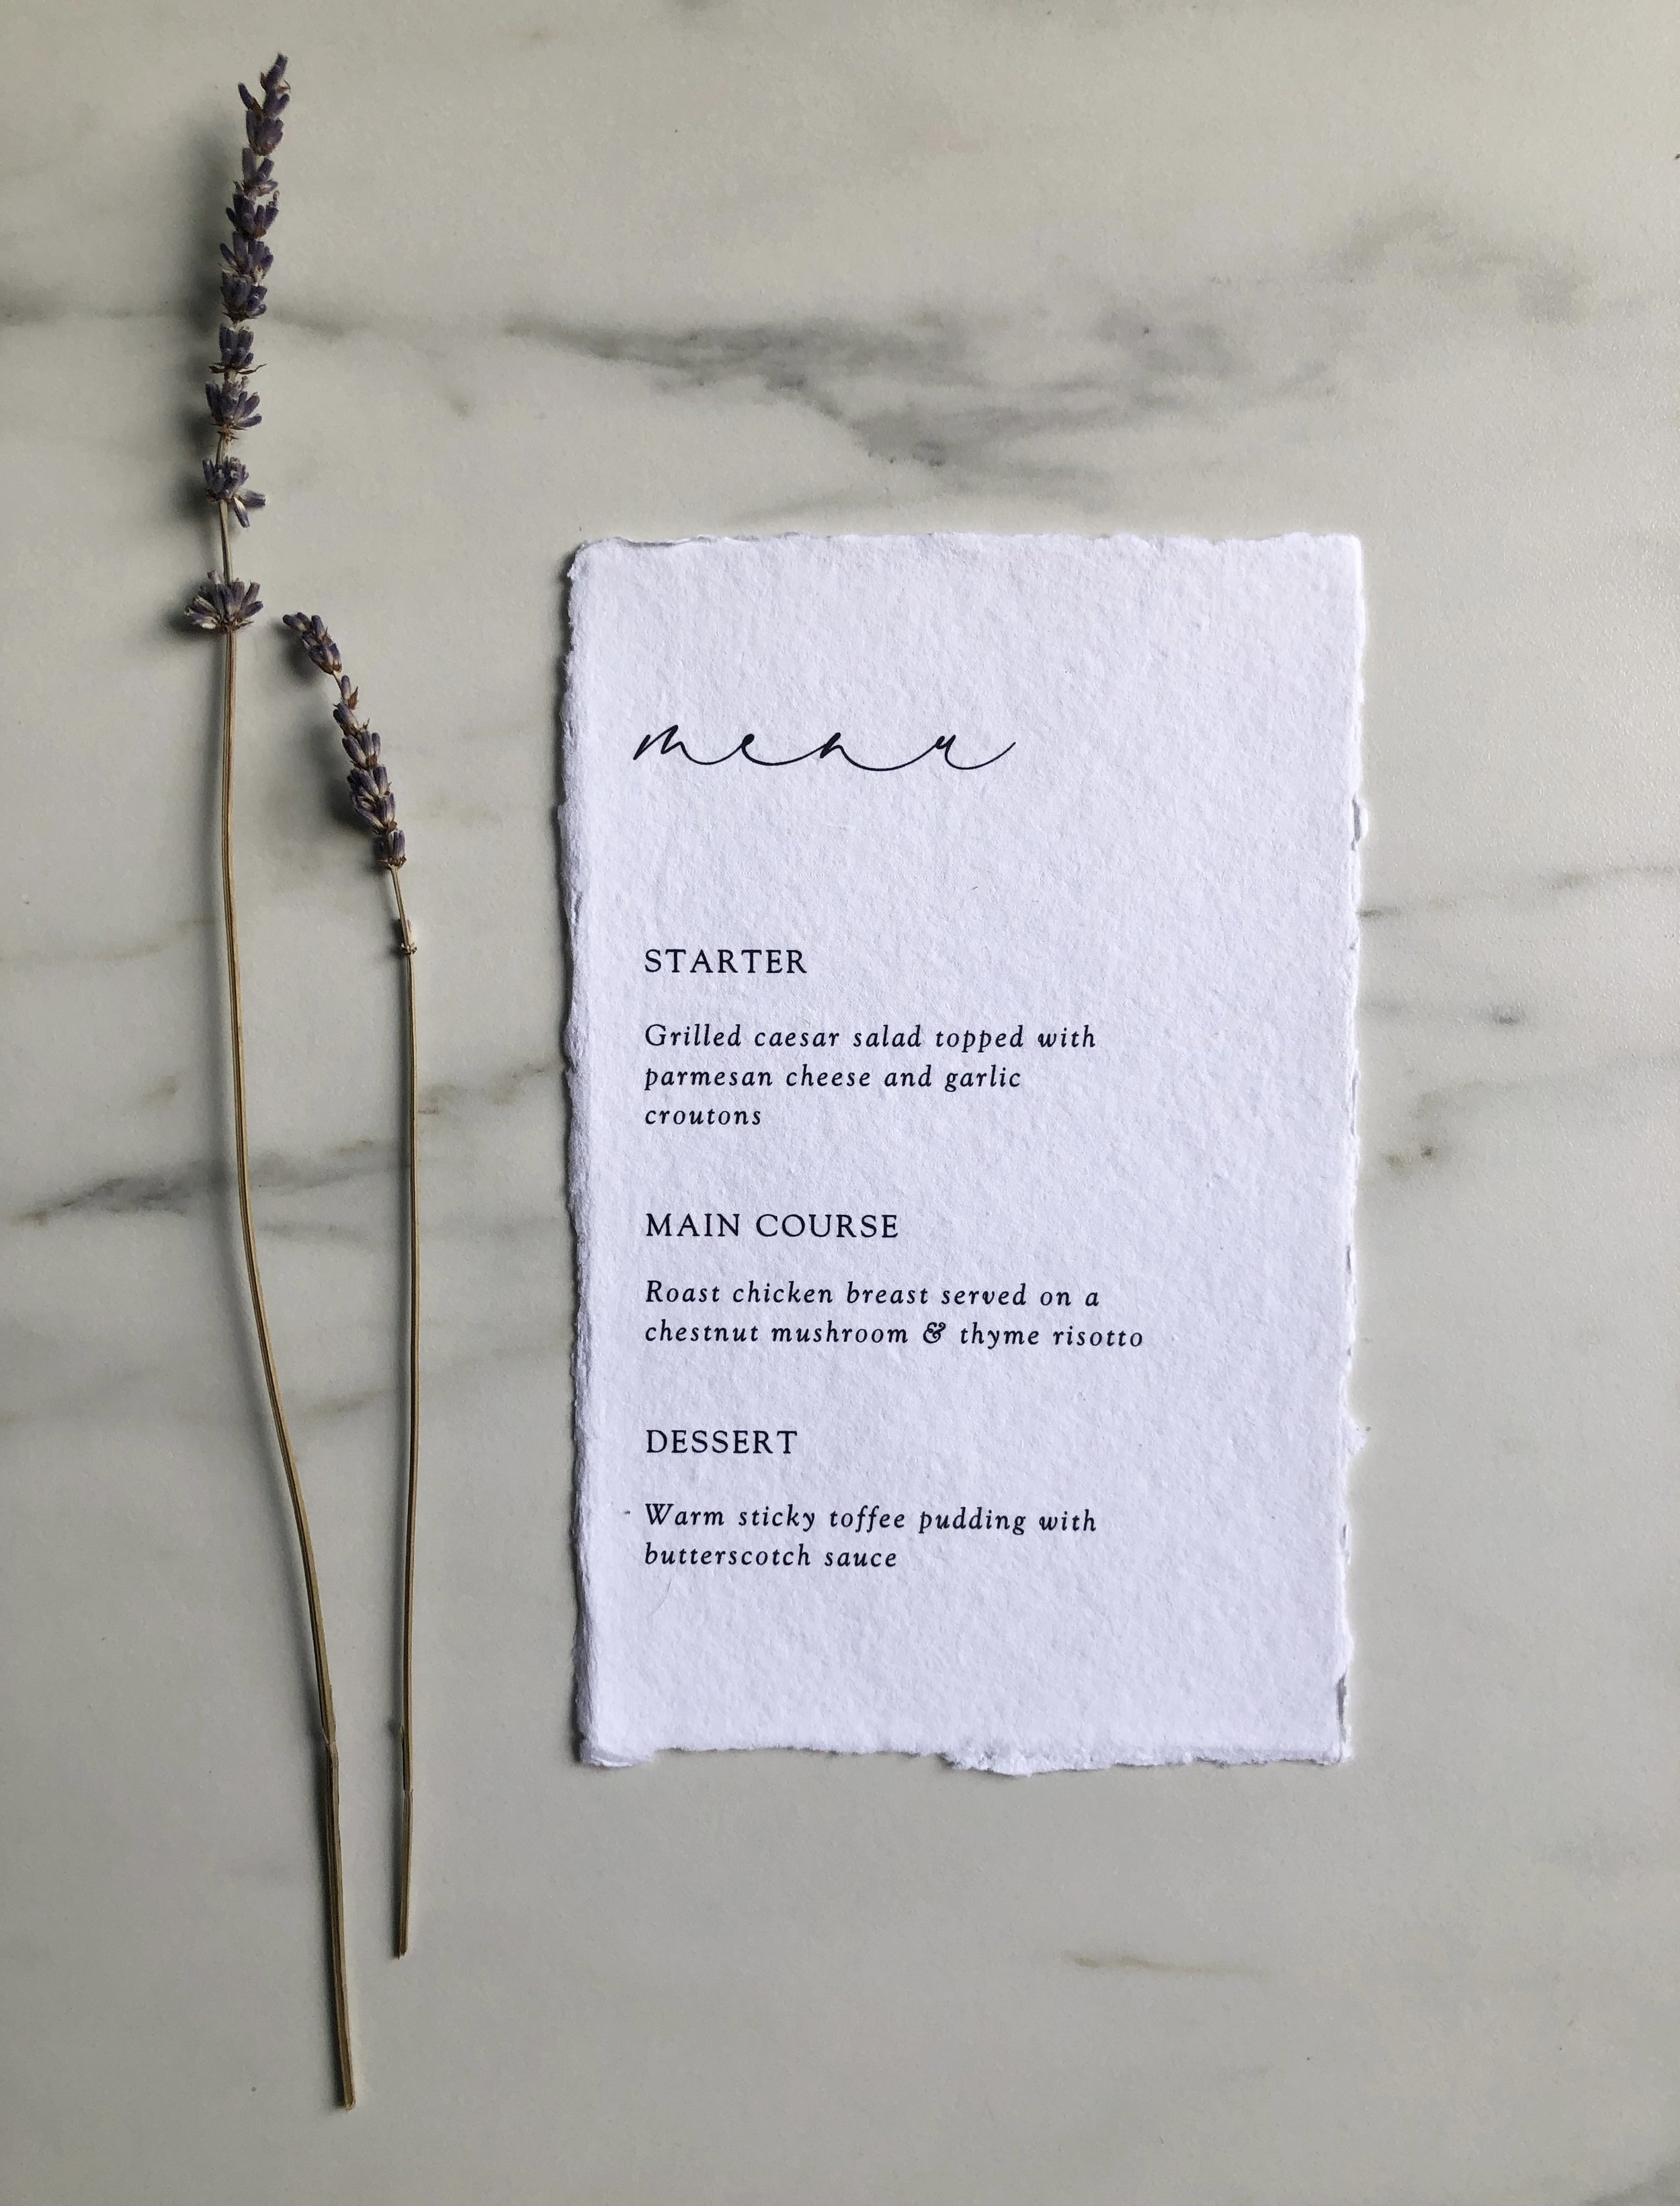 menu
STARTER
Grilled caesar salad topped with
parmesan cheese and garlic
croutons
MAIN COURSE
Roast chicken breast served on a
chestnut mushroom & thyme risotto
DESSERT
Warm sticky toffee pudding with
butterscotch sauce